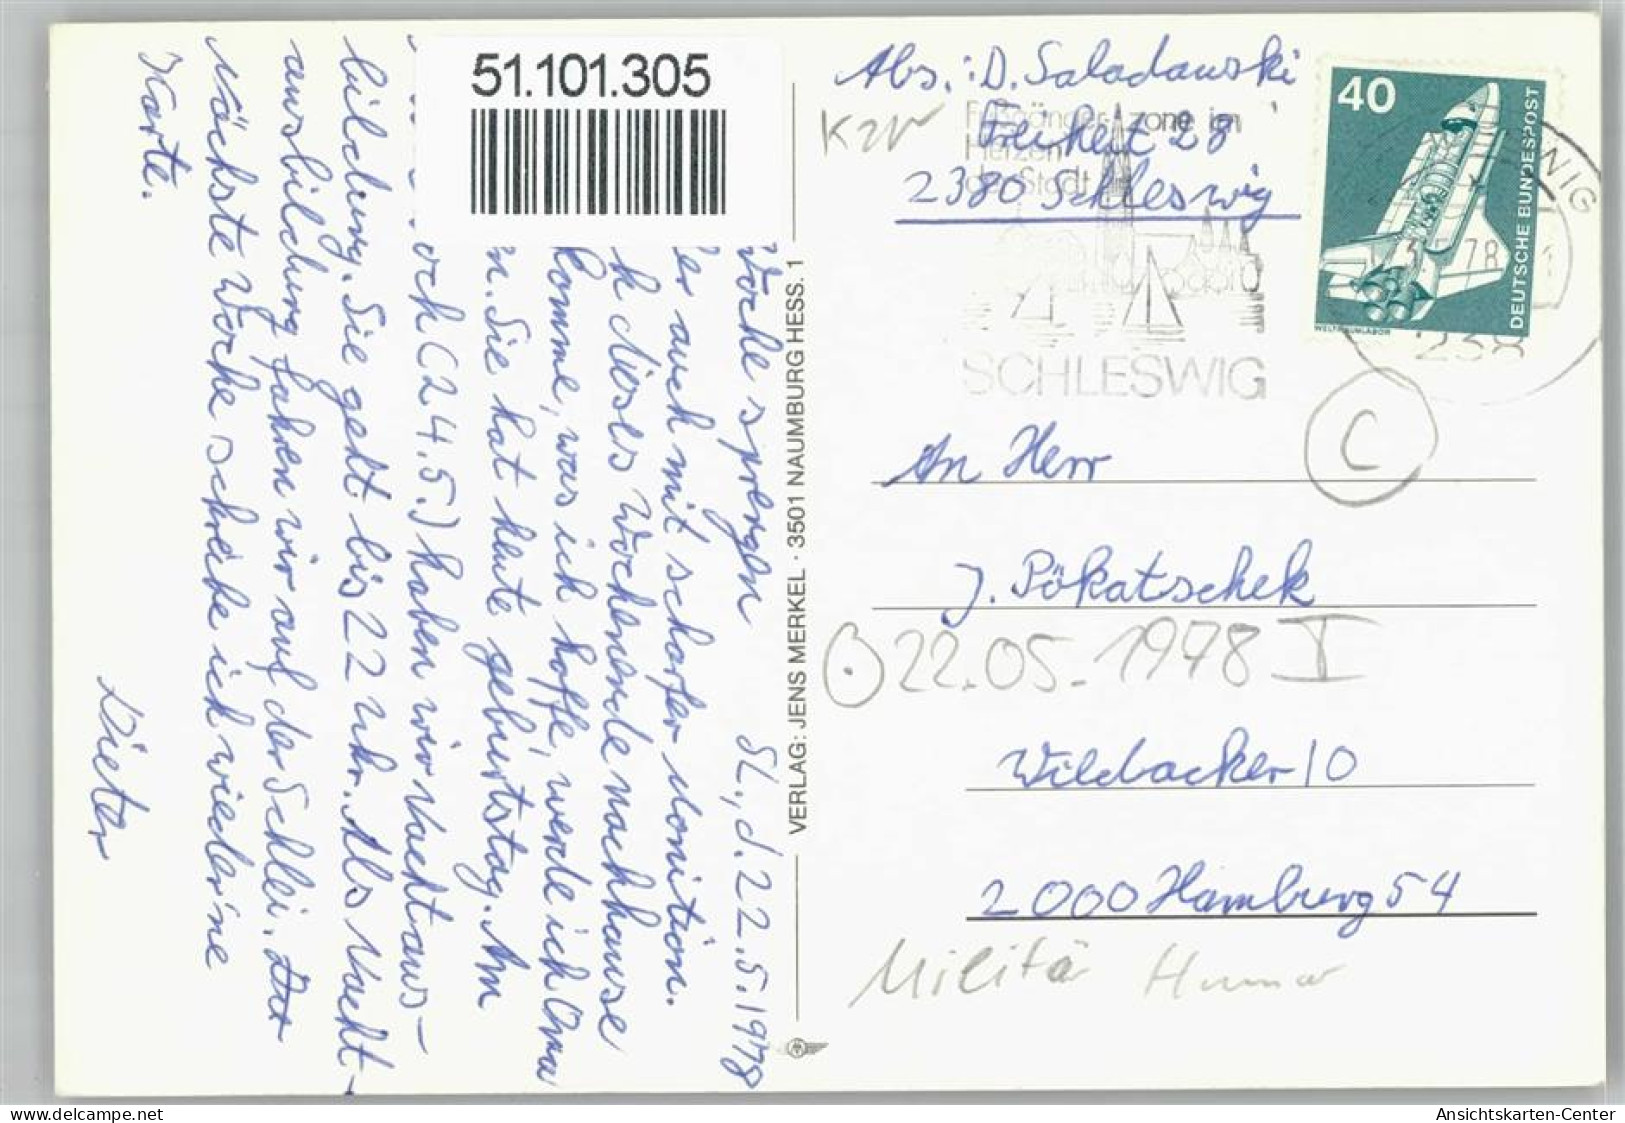 51.101.305
SL., d. 22.5.1978
Woche sprengen
er auch mit scharfer Monition.
h dieses Wochenende nachhause
komme, was ich hoffe, werde ich Oma
n. Sie hat heute geburtstag. Am
och (24.5.) haben wir Nachtaus-
bildung. Sie geht bis 22 uhr. Als Nacht-
ausbildung fahren wir auf der Schlei.
Nächste Woche schreibe ich wieder ne
Karte.
Dieter
VERLAG: JENS MERKEL · 3501 NAUMBURG HESS. 1
Abs.: D. Saladawski
Freiheit 28
2380 Schleswig
Fußgänger-zone im
Herzen
der Stadt
SCHLESWIG
40
DEUTSCHE BUNDESPOST
WELTRAUMLABOR
WIG
78
238
C
An Herr
J. Pökatschek
22.05.1978 I
Wildacker 10
2000 Hamburg 54
Militä Humor
www.delcampe.net
Ansichtskarten-Center